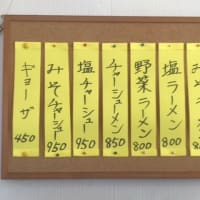 塩ラーメン 800
野菜ラーメン 800
チャーシューメン 850
塩チャーシュー 950
みそチャーシュー 950
ギョーザ 450